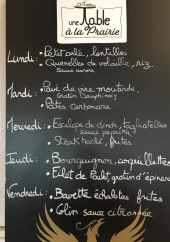 une Table
à la Prairie
Lundi : • Petit salé, lentilles
• Quenelles de volaille, riz
sauce aurore
Mardi : • Pavé de veau moutarde,
Gratin Dauphinois
• Pâtes Carbonara
Mercredi : • Escalope de dinde, tagliatelles
sauce paprika
• Steak haché, frites
Jeudi : • Bourguignon, coquillettes
• Filet de Poulet gratin d'épinards
Vendredi : • Bavette échalotes frites
• Colin sauce citronnée